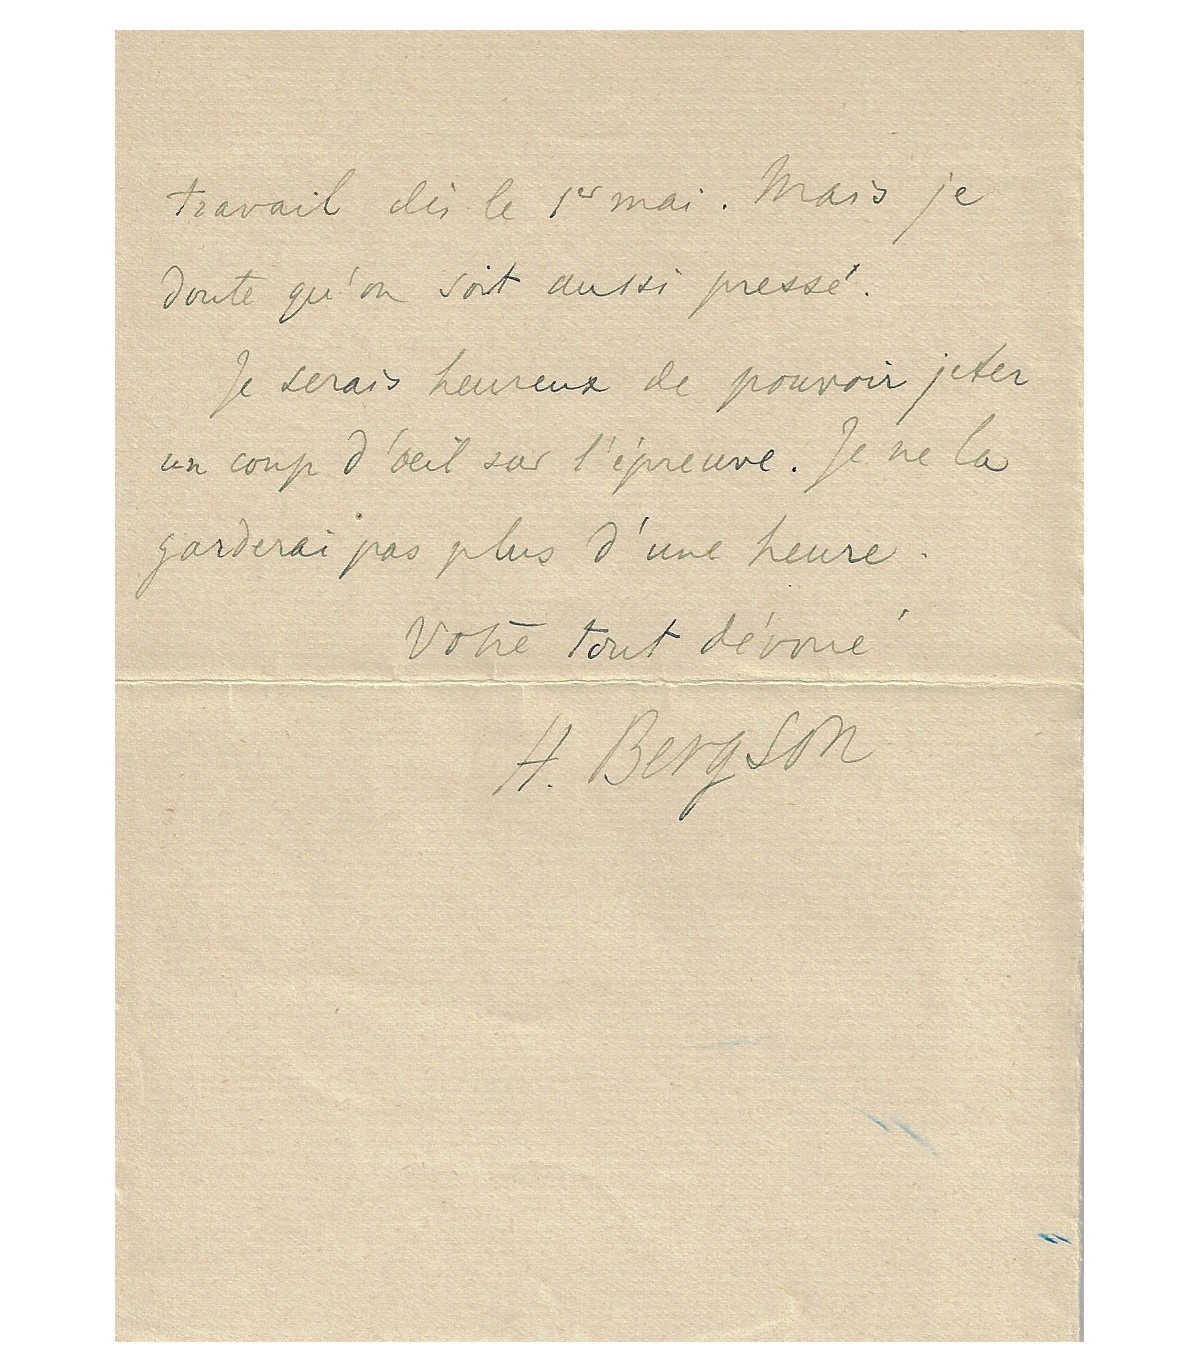 travail dès le 1er mai. Mais je
doute qu'on soit aussi pressé.
Je serais heureux de pouvoir jeter
un coup d'œil sur l'épreuve. Je ne la
garderai pas plus d'une heure.
Votre tout dévoué
H. Bergson